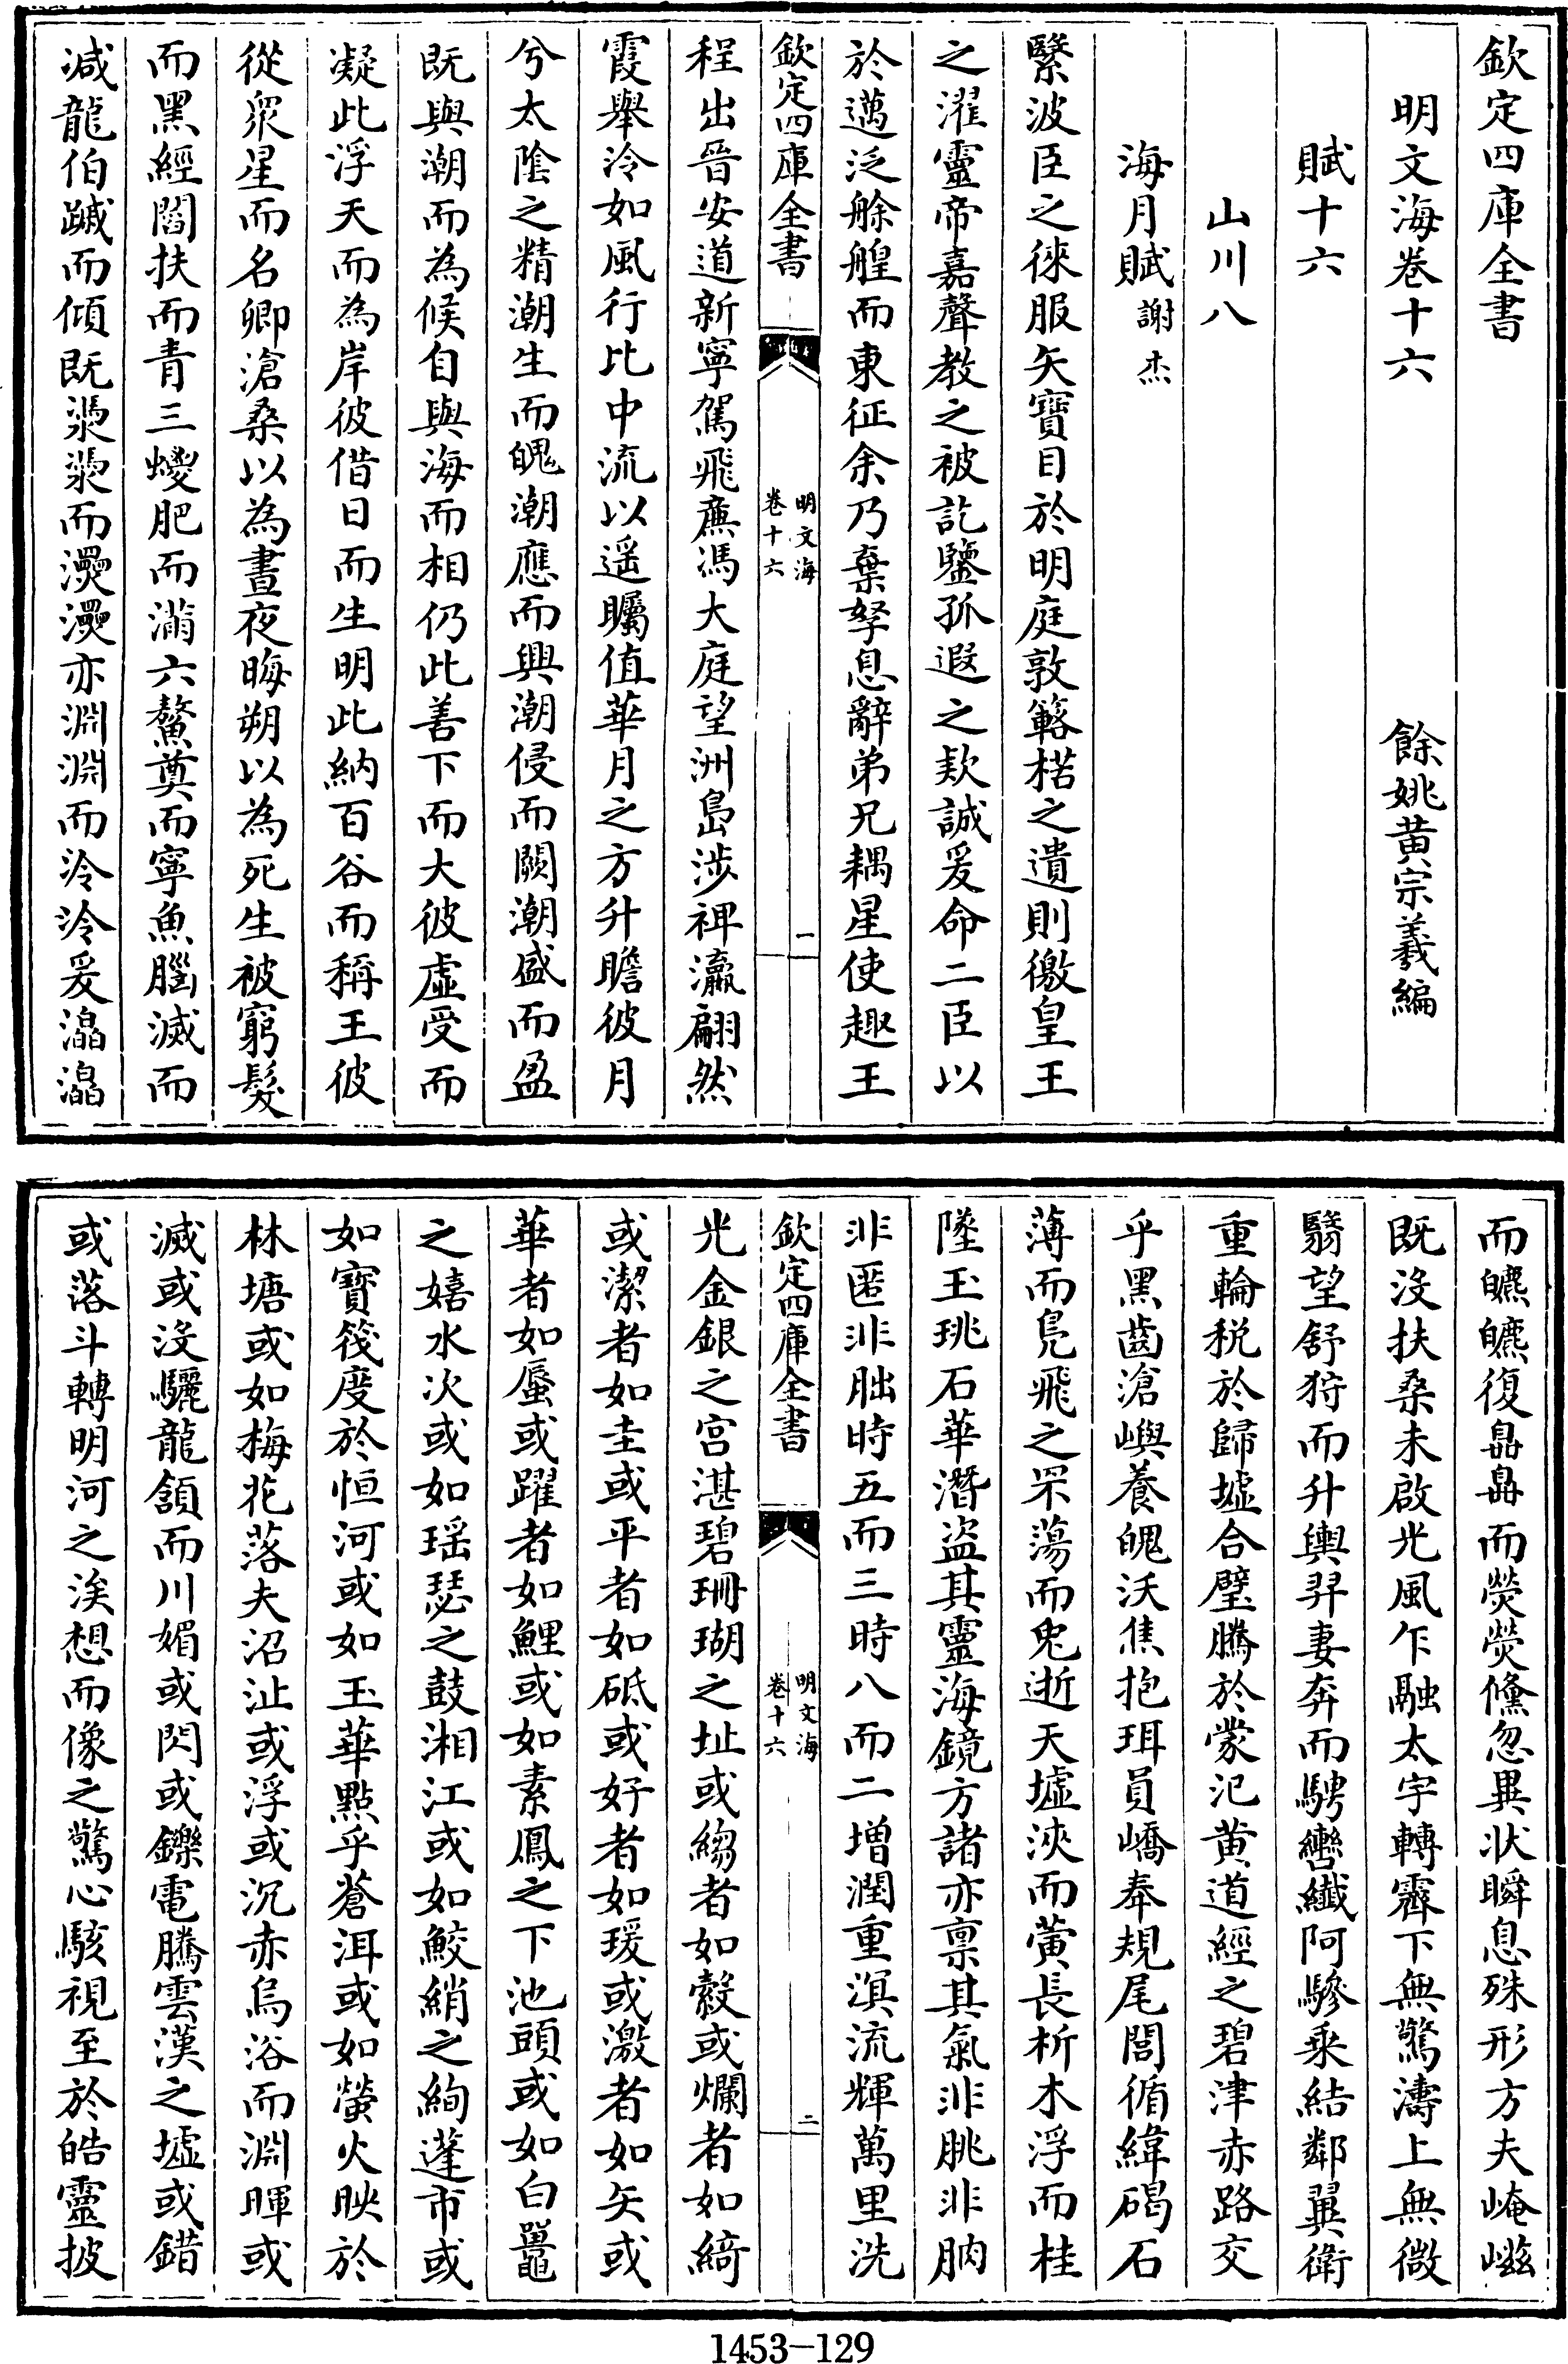 欽定四庫全書
明文海卷十六
餘姚黄宗羲編
賦十六
山川八
海月賦 謝杰
繄波臣之徠服矢寶目於明庭敦簵楛之遺則徼皇王
之濯靈帝嘉聲教之被訖鑒孤遐之欵誠爰命二臣以
於邁泛艅艎而東征余乃棄孥息辭弟兄耦星使趣王
欽定四庫全書
明文海
卷十六
一
程出晉安道新寧駕飛廉馮大庭望洲島涉裨瀛翩然
霞舉泠如風行比中流以遥矚值華月之方升瞻彼月
兮太陰之精潮生而魄潮應而興潮侵而闕潮盛而盈
既與潮而為候自與海而相仍此善下而大彼虛受而
凝此浮天而為岸彼借日而生明此納百谷而稱王彼
從衆星而名卿滄桑以為晝夜晦朔以為死生被窮髮
而黑經閻扶而青三蠼肥而瀰六鰲奠而寧魚腦滅而
減龍伯蹴而傾既漤漤而灪灪亦淵淵而泠泠爰灥灥
而皫皫復皛皛而熒熒儵忽異状瞬息殊形方夫崦嵫
既沒扶桑未啟光風乍融太宇轉霽下無驚濤上無微
翳望舒狩而升輿羿妻奔而騁轡纎阿驂乘結鄰翼衛
重輪税於歸墟合璧騰於蒙汜黄道經之碧津赤路交
乎黑齒滄嶼養魄沃焦抱珥員嶠奉規尾閭循緯碣石
薄而鳧飛之罘蕩而兔逝天墟浹而蓂長析木浮而桂
墜玉珧石華潛盗其靈海鏡方諸亦禀其氣非朓非朒
非匿非朏時五而三時八而二增潤重溟流輝萬里洗
欽定四庫全書
明文海
卷十六
二
光金銀之宫湛碧珊瑚之址或縐者如縠或爛者如綺
或潔者如圭或平者如砥或好者如瑗或激者如矢或
華者如蜃或躍者如鯉或如素鳳之下池頭或如白鼉
之嬉水次或如瑶瑟之鼓湘江或如鮫綃之絢蓬市或
如寳筏度於恒河或如玉華點乎蒼洱或如螢火映於
林塘或如梅花落夫沼沚或浮或沉赤烏浴而淵暉或
滅或沒驪龍頷而川媚或閃或鑠電騰雲漢之墟或錯
或落斗轉明河之涘想而像之驚心駭視至於皓靈披
1453-129